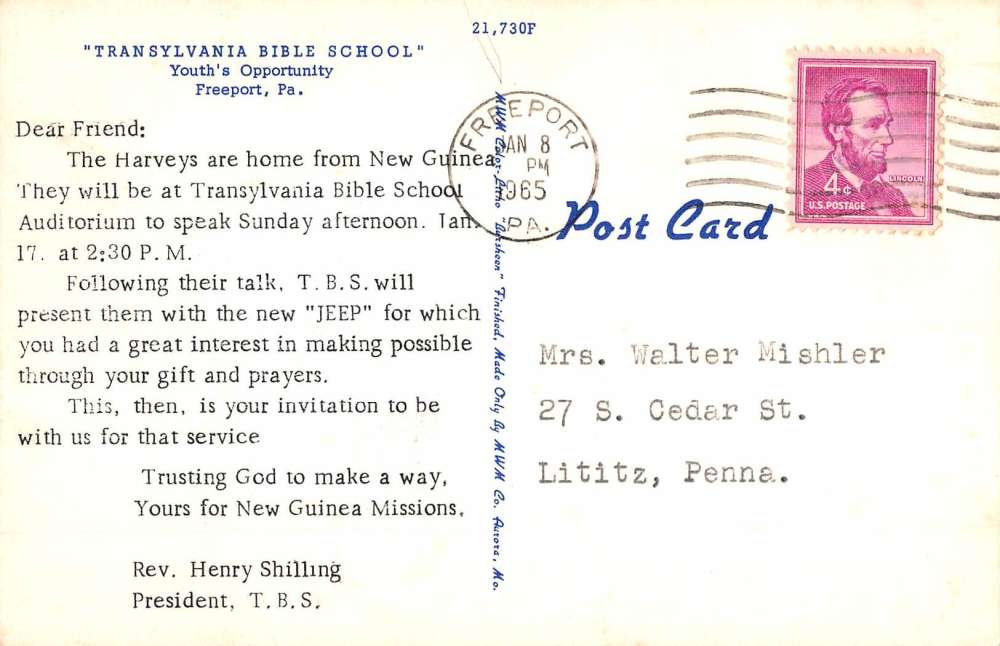 21,730F
"TRANSYLVANIA BIBLE SCHOOL"
Youth's Opportunity
Freeport, Pa.
Dear Friend:
The Harveys are home from New Guinea.
They will be at Transylvania Bible School
Auditorium to speak Sunday afternoon. Jan.
17, at 2:30 P. M.
Following their talk, T. B. S. will
present them with the new "JEEP" for which
you had a great interest in making possible
through your gift and prayers.
This, then, is your invitation to be
with us for that service
Trusting God to make a way,
Yours for New Guinea Missions,
Rev. Henry Shilling
President, T. B. S.
MWM Color-Litho "Aversheen" Finished, Made Only By MWM Co. Aurora, Mo.
FREEPORT
JAN 8
PM
1965
PA.
Post Card
LINCOLN
4¢
U.S. POSTAGE
Mrs. Walter Mishler
27 S. Cedar St.
Lititz, Penna.